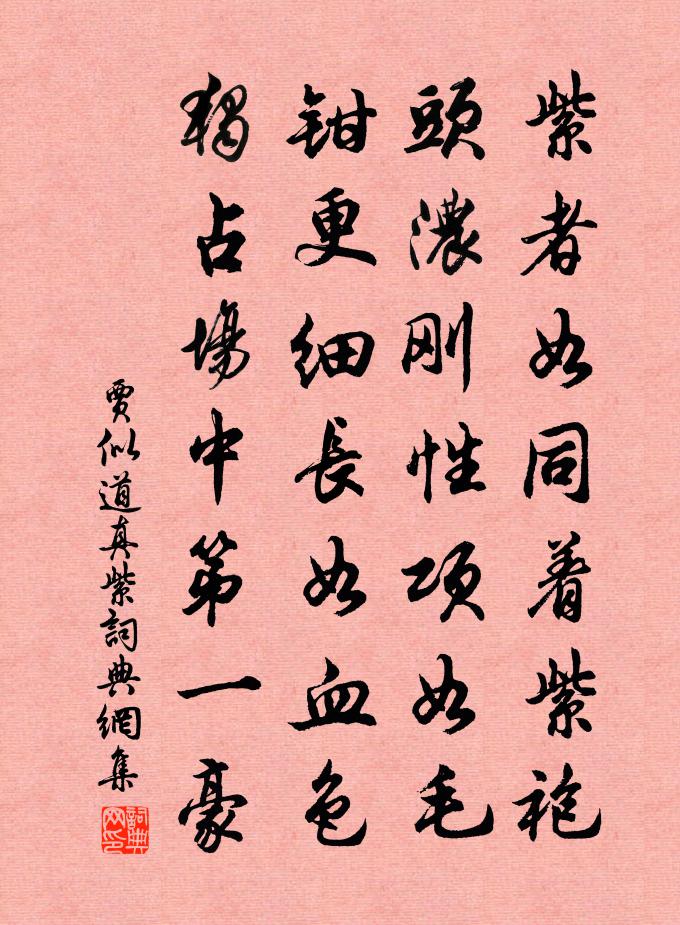 紫者如同着紫袍
頭濃刚性项如毛
鉗更细長如血色
獨占場中第一豪
賈似道真紫詞典網集
詞典网印